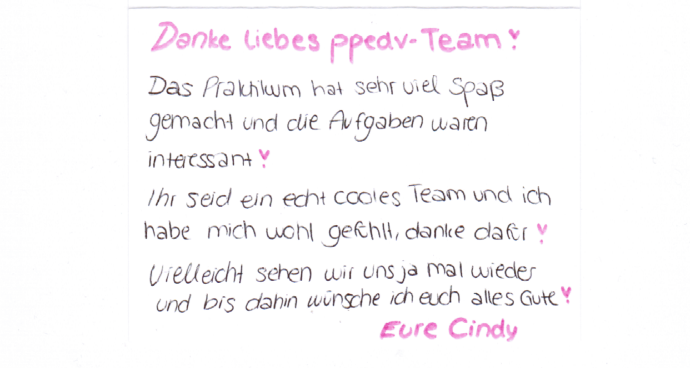 Danke liebes ppedv-Team!
Das Praktikum hat sehr viel Spaß
gemacht und die Aufgaben waren
interessant!
Ihr seid ein echt cooles Team und ich
habe mich wohl gefühlt, danke dafür!
Vielleicht sehen wir uns ja mal wieder
und bis dahin wünsche ich euch alles Gute!
Eure Cindy